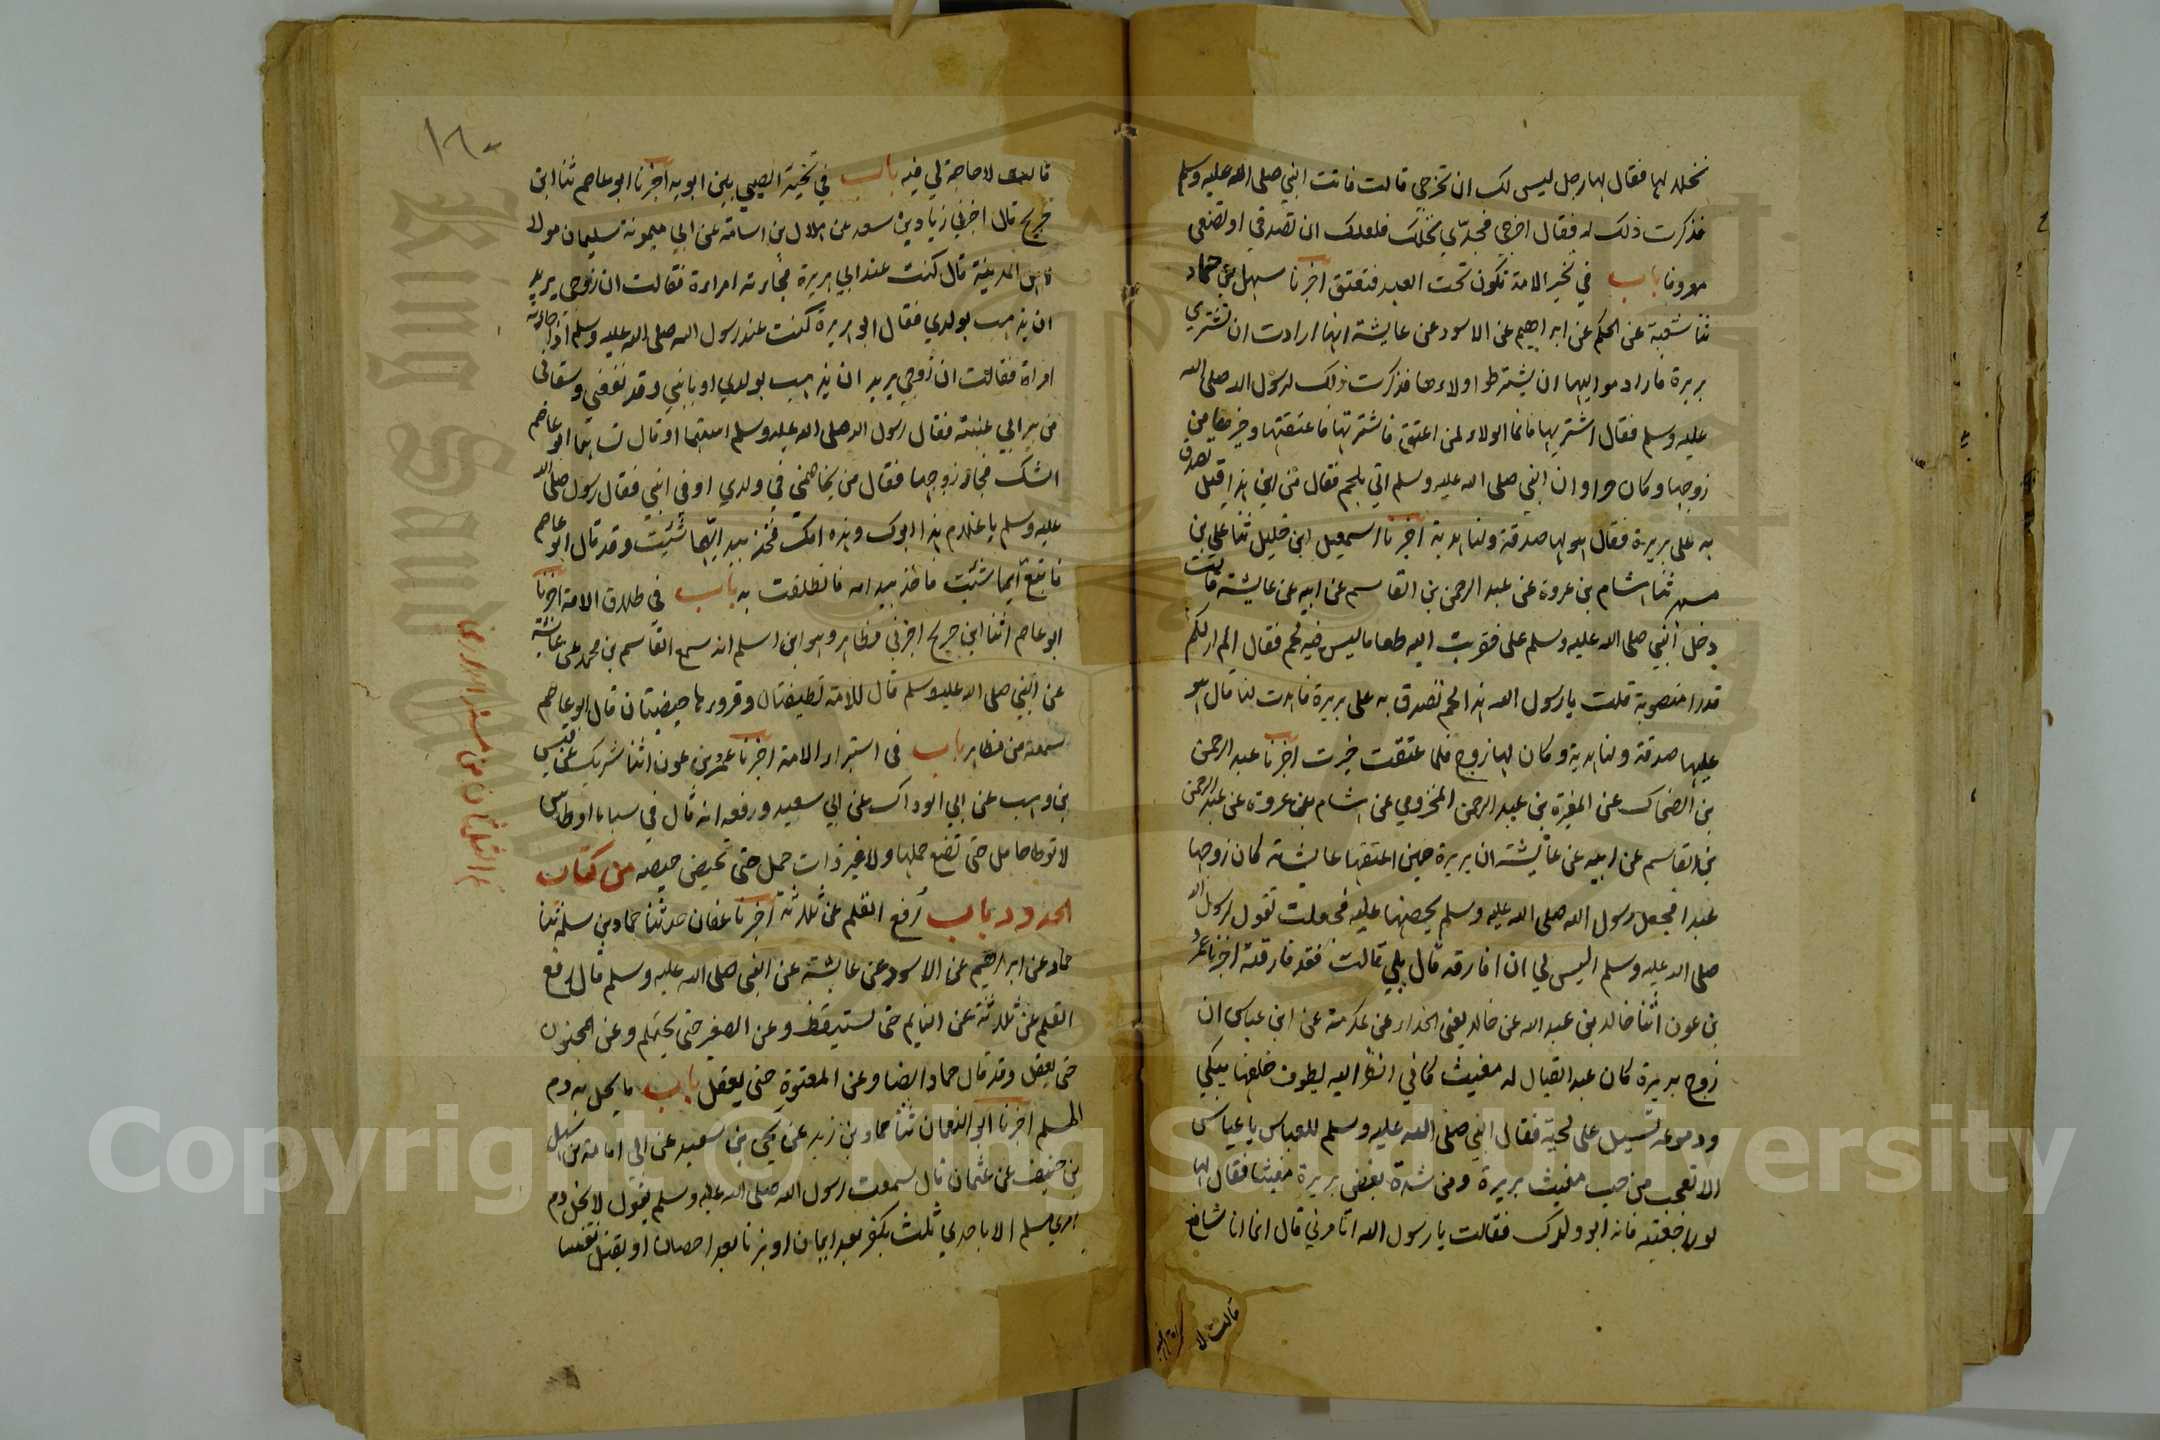 نخلا لها فقال لها رجل ليس لك ان تخرجي قالت فاتت النبي صلى الله عليه وسلم
فذكرت ذلك له فقال اخرجي فجدّي نخلك فلعلك ان تصدقي او تصنعي
معروفا باب في تخير الامة تكون تحت العبد فتعتق اخبرنا سهل بن حماد
ثنا شعبة عن الحكم عن ابراهيم عن الاسود عن عايشة انها ارادت ان تشتري
بريرة فاراد مواليها ان يشترطوا ولاءها فذكرت ذلك لرسول الله صلى الله
عليه وسلم فقال اشتريها فانما الولاء لمن اعتق فاشترتها فاعتقتها وخيرها من
زوجها وكان حرا وان النبي صلى الله عليه وسلم اتي بلحم فقال من اين هذا قيل تصدق
به على بريرة فقال هو لها صدقة ولنا هدية اخبرنا اسمعيل ابن خليل ثنا علي بن
مسهر ثنا هشام بن عروة عن عبد الرحمن بن القاسم عن ابيه عن عايشة قالت
دخل النبي صلى الله عليه وسلم على فقربت اليه طعاما ليس فيه لحم فقال الم ار لكم
قدرا منصوبة قلت يا رسول الله هذا لحم تصدق به على بريرة فاهدت لنا قال هو
عليها صدقة ولنا هدية وكان لها زوج فلما عتقت خيرت اخبرنا عبد الرحمن
بن الضحاك عن المغيرة بن عبد الرحمن المخزومي عن هشام بن عروة عن عبد الرحمن
بن القاسم عن ابيه عن عايشة ان بريرة حين اعتقتها عايشة كان زوجها
عبدا فجعل رسول الله صلى الله عليه وسلم يحضها عليه فجعلت تقول لرسول الله
صلى الله عليه وسلم اليس لي ان افارقه قال بلى قالت فقد فارقته اخبرنا عمرو
بن عون انا خالد بن عبد الله عن خالد يعني الحذاء عن عكرمة عن ابن عباس ان
زوج بريرة كان عبدا يقال له مغيث كاني انظر اليه يطوف خلفها يبكي
ودموعه تسيل على لحيته فقال النبي صلى الله عليه وسلم للعباس يا عباس
الا تعجب من حب مغيث بريرة ومن شدة بغض بريرة مغيثا فقال لها
لو راجعتيه فانه ابو ولدك فقالت يا رسول الله اتامرني قال انما انا شافع
قالت لا
١٦٠
قالت لا حاجة لي فيه باب في تخيير الصبي بين ابويه اخبرنا ابو عاصم ثنا ابن
جريج قال اخبرني زياد بن سعد عن هلال بن اسامة عن ابي ميمونة سليمان مولا
لاهل المدينة قال كنت عند ابي هريرة فجاءته امراءة فقالت ان زوجي يريد
ان يذهب بولدي فقال ابو هريرة كنت عند رسول الله صلى الله عليه وسلم اذ جاءته
امراة فقالت ان زوجي يريد ان يذهب بولدي او بابني وقد نفعني وسقاني
من بير ابي عنبة فقال رسول الله صلى الله عليه وسلم استهما او قال تساهما ابو عاصم
الشك فجاء زوجها فقال من يخاصمني في ولدي او في ابني فقال رسول صلى الله
عليه وسلم يا غلام هذا ابوك وهذه امك فخذ بيد ايهما شئت وقد قال ابو عاصم
فاتبع ايهما شئت فاخذ بيد امه فانطلقت به باب في طلاق الامة اخبرنا
ابو عاصم انا ابن جريج اخبرني مظاهر وهو ابن اسلم انه سمع القاسم بن محمد عن عائشة
عن النبي صلى الله عليه وسلم قال للامة تطليقتان وقروءها حيضتان قال ابو عاصم
سمعته من مظاهر باب في استبراء الامة اخبرنا عمرو بن عون انا شريك عن قيس
بن وهب عن ابي الوداك عن ابي سعيد ورفعه انه قال في سبايا اوطاس
لا توطا حامل حتى تضع حملها ولا غير ذات حمل حتى تحيض حيضة من كتاب
الحدود باب رفع القلم عن ثلاثة اخبرنا عفان حدثنا حماد بن سلمة ثنا
حماد عن ابراهيم عن الاسود عن عايشة عن النبي صلى الله عليه وسلم قال رفع
القلم عن ثلاثة عن النايم حتى يستيقظ وعن الصغير حتى يحتلم وعن المجنون
حتى يعقل وقد قال حماد ايضا وعن المعتوه حتى يعقل باب ما يحل به دم
المسلم اخبرنا ابو النعمان ثنا حماد بن زيد عن يحيى بن سعيد عن ابي امامة بن سهل
بن حنيف عن عثمان قال سمعت رسول الله صلى الله عليه وسلم يقول لا يحل دم
امري مسلم الا باحدي ثلث بكفر بعد ايمان او بزنا بعد احصان او يقتل نفسا
Copyright © King Saud University
King Saud University